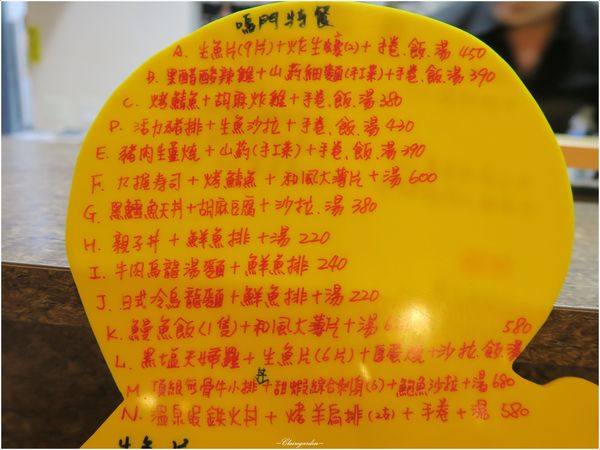 鳴門特餐
A. 生魚片(9片)+炸生蠔(2)+手卷.飯.湯 450
B. 黑醋酸辣雞+山葯細麵(紅菜)+手卷.飯.湯 390
C. 烤鯖魚+胡麻炸雞+手卷.飯.湯 380
D. 活力豬排+生魚沙拉+手卷.飯.湯 430
E. 豬肉生薑燒+山葯(紅菜)+手卷.飯.湯 390
F. 九握寿司+烤鯖魚+和風大薄片+湯 600
G. 黑鱈魚天丼+胡麻豆腐+沙拉.湯 380
H. 親子丼+鮮魚排+湯 220
I. 牛肉烏龍湯麵+鮮魚排 240
J. 日式冷烏龍麵+鮮魚排+湯 220
K. 鰻魚飯(1隻)+和風大薄片+湯 6
L. 黑塩天婦羅+生魚片(6片)+厚蛋燒+沙拉.飯.湯 580
M. 頂級無骨牛小排+甜蝦綜合刺身(5)+鮑魚沙拉+湯 680
N. 溫泉蛋鐵火丼+烤羊肩排(2支)+手卷+湯 580
~Chungarden~